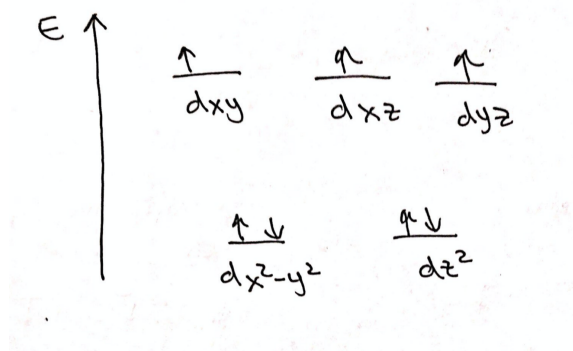 E
dxy dxz dyz
dx²-y² dz²